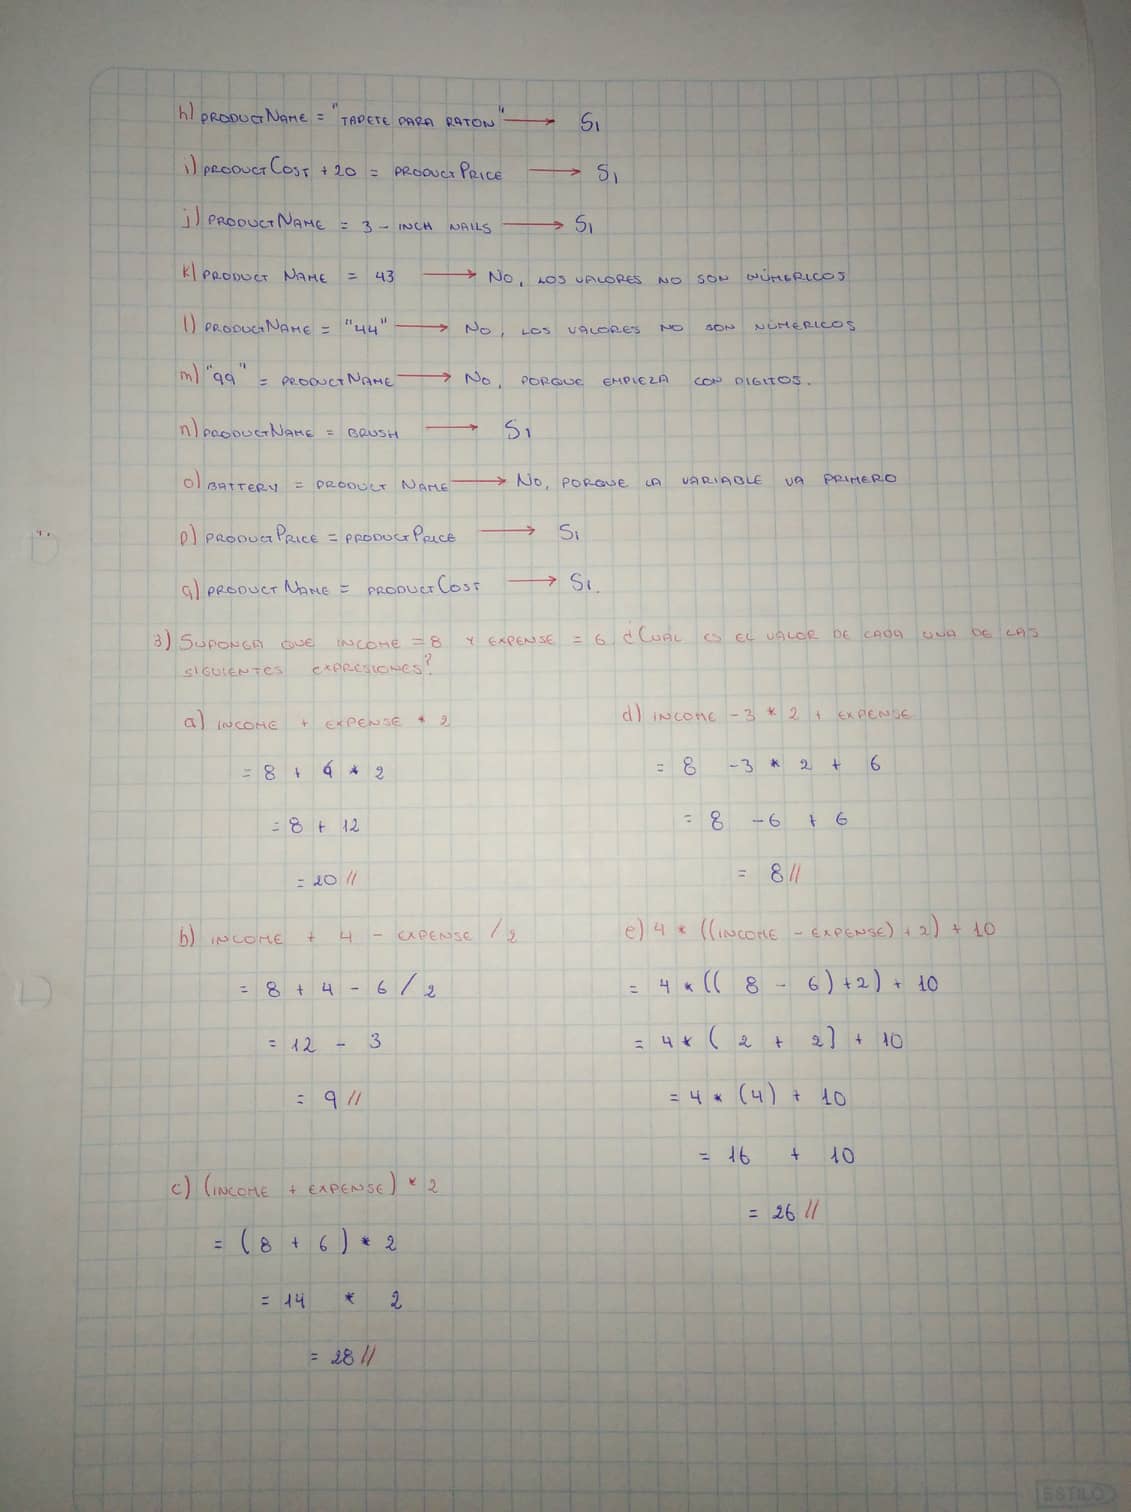 h) PRODUCTNAME = "TAPETE PARA RATON" → Si
i) PRODUCTCOST +20 = PRODUCTPRICE → Si
j) PRODUCTNAME = 3-INCH NAILS → Si
k) PRODUCT NAME = 43 → No, LOS VALORES NO SON NÚMERICOS
l) PRODUCTNAME = "44" → No, LOS VALORES NO SON NÚMERICOS
m) "99" = PRODUCTNAME → No, PORQUE EMPIEZA CON DIGITOS.
n) PRODUCTNAME = BRUSH → Si
o) BATTERY = PRODUCT NAME → No, PORQUE LA VARIABLE VA PRIMERO
p) PRODUCTPRICE = PRODUCTPRICE → Si
q) PRODUCTNAME = PRODUCTCOST → Si.
3) SUPONGA QUE INCOME = 8 Y EXPENSE = 6 ¿CUAL ES EL VALOR DE CADA UNA DE LAS
SIGUIENTES EXPRESIONES?
a) INCOME + EXPENSE * 2
= 8 + 6 * 2
= 8 + 12
= 20 //
b) INCOME + 4 - EXPENSE / 2
= 8 + 4 - 6 / 2
= 12 - 3
= 9 //
c) (INCOME + EXPENSE) * 2
= (8 + 6) * 2
= 14 * 2
= 28 //
d) INCOME - 3 * 2 + EXPENSE
= 8 - 3 * 2 + 6
= 8 - 6 + 6
= 8 //
e) 4 * ((INCOME - EXPENSE) + 2) + 10
= 4 * (( 8 - 6) + 2) + 10
= 4 * ( 2 + 2] + 10
= 4 * (4) + 10
= 16 + 10
= 26 //
ESTILO